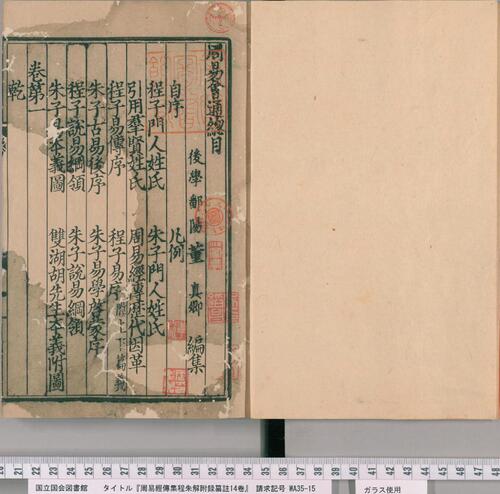 周易會通總目
後學鄱陽董 真卿 編集
自序 凡例
程子門人姓氏 朱子門人姓氏
引用羣賢姓氏 周易經傳歷代因革
程子易傳序 程子易序 附上下篇義
朱子古易後序 朱子易學啓蒙序
程子說易綱領 朱子說易綱領
朱子易本義圖 雙湖胡先生本義附圖
卷第一
乾
20 21 22 23 24 25 26 27 28 29 30 31 32 33 34 35 36 37 38 39 40 41 42 43 44 45 46 47 48
国立国会図書館 タイトル『周易經傳集程朱解附録纂註14巻』 請求記号 WA35-15 ガラス使用